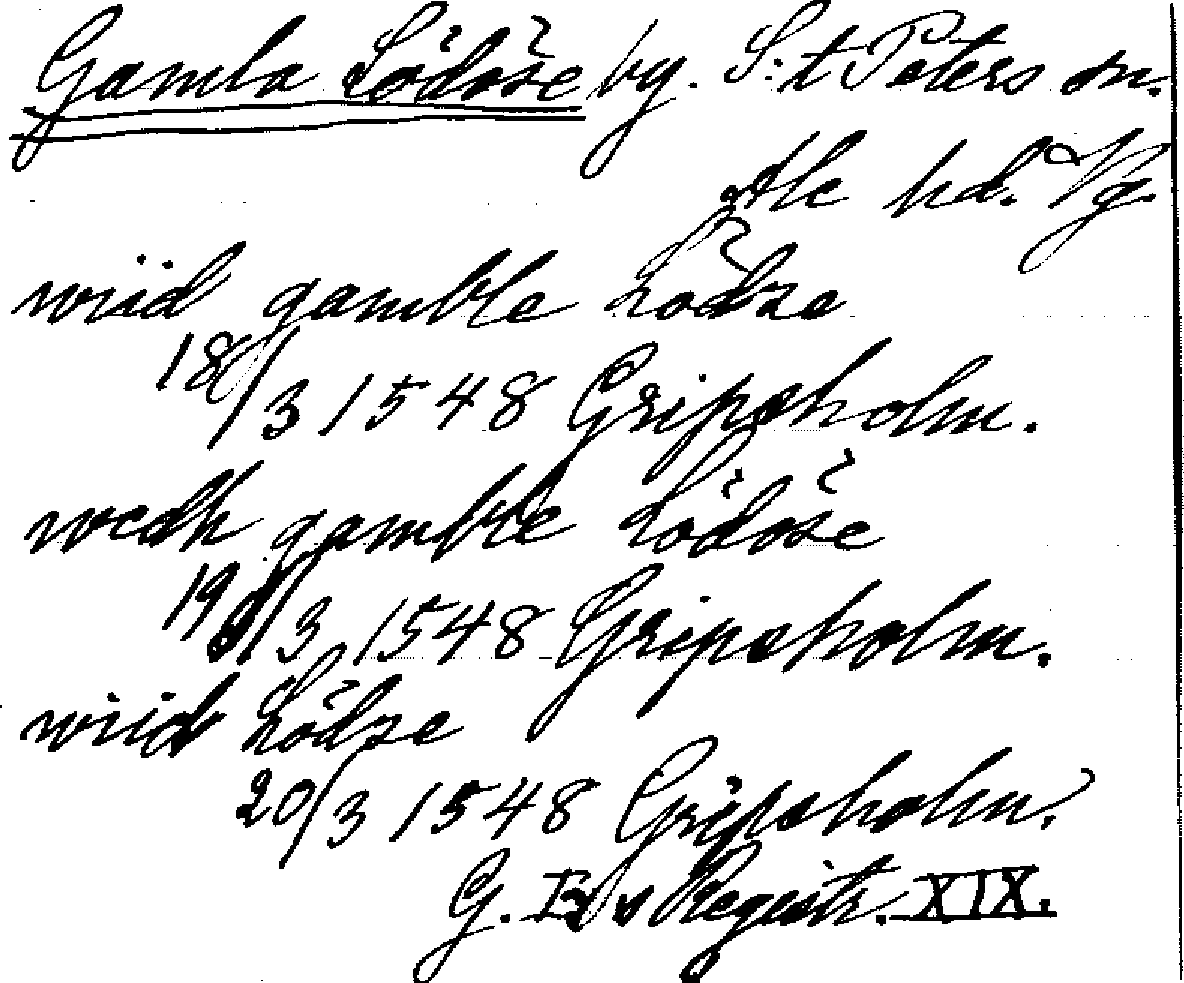 Gamla Lödöse by. S:t Peters sn.
Ale hd. Vg.
wiid gamble Lödze
18/3 1548 Gripsholm.
wedh gamble Lödöse
19/3 1548 Gripsholm.
wiid Lödze
20/3 1548 Gripsholm.
G. I:s Registr. XIX.